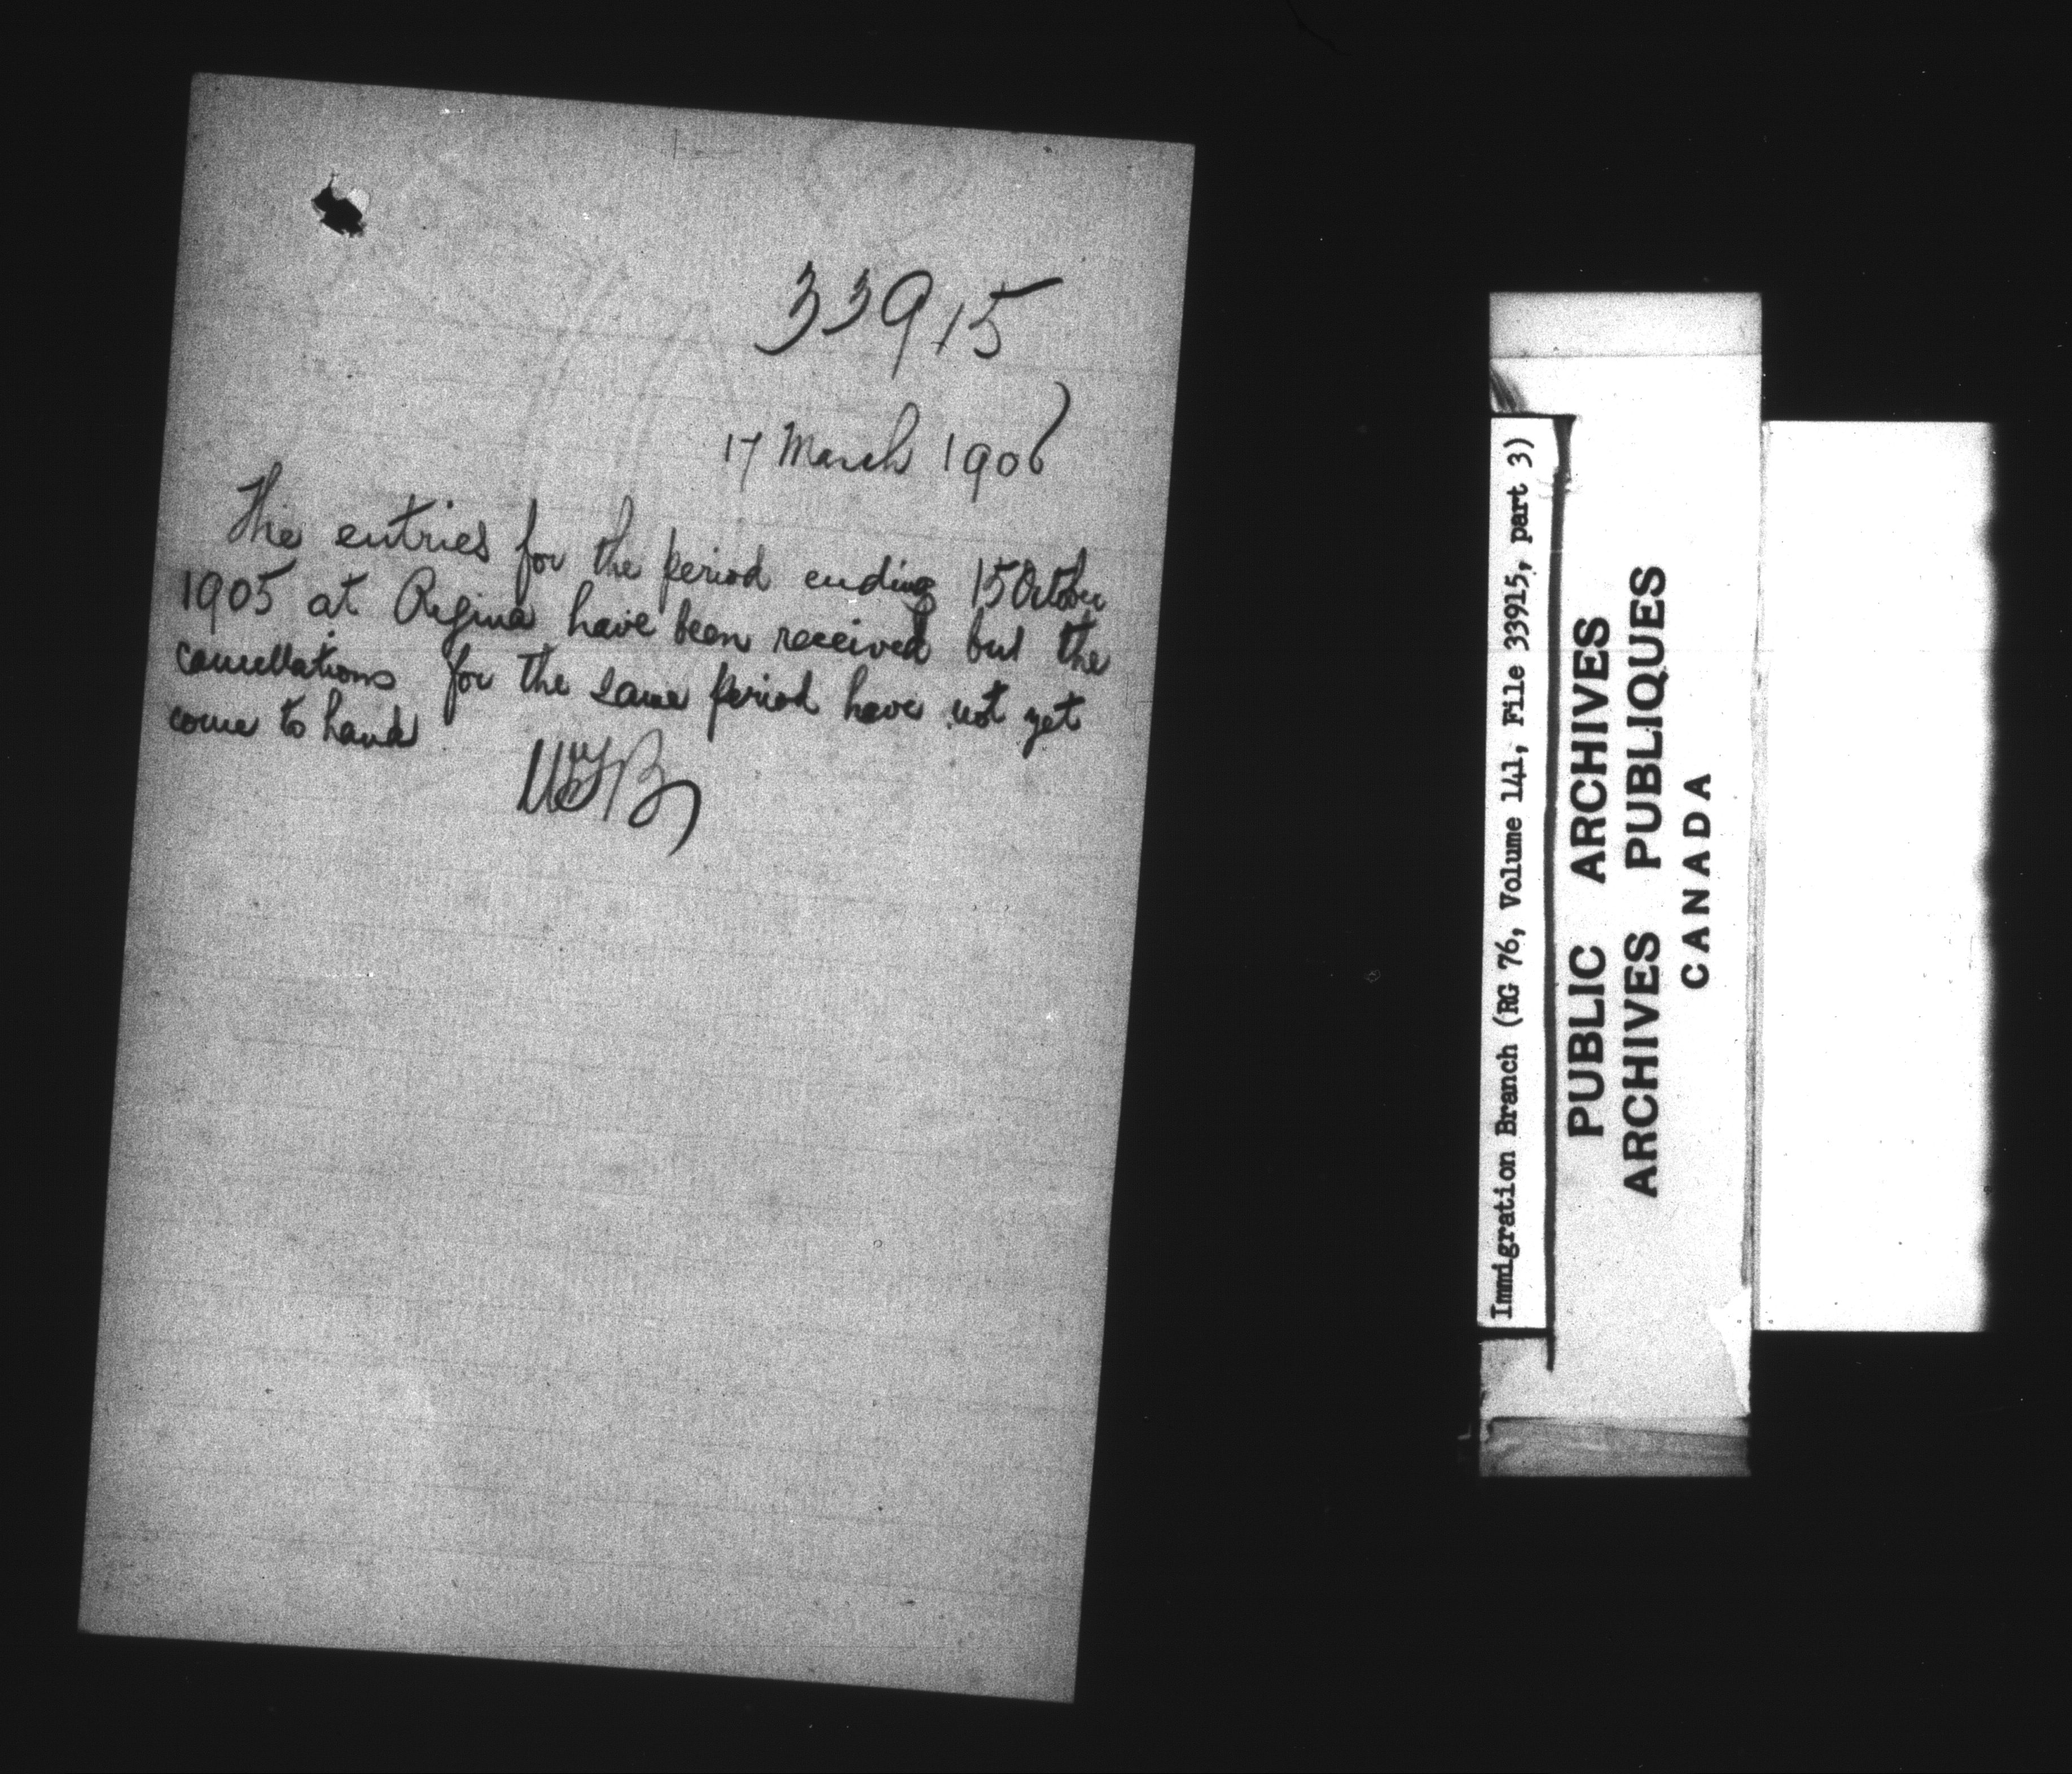 33915
17 March 1906
The entries for the period ending 15 October
1905 at Regina have been received but the
cancellations for the same period have not yet
come to hand
Immigration Branch (RG 76, Volume 141, File 33915, part 3)
PUBLIC ARCHIVES
ARCHIVES PUBLIQUES
CANADA